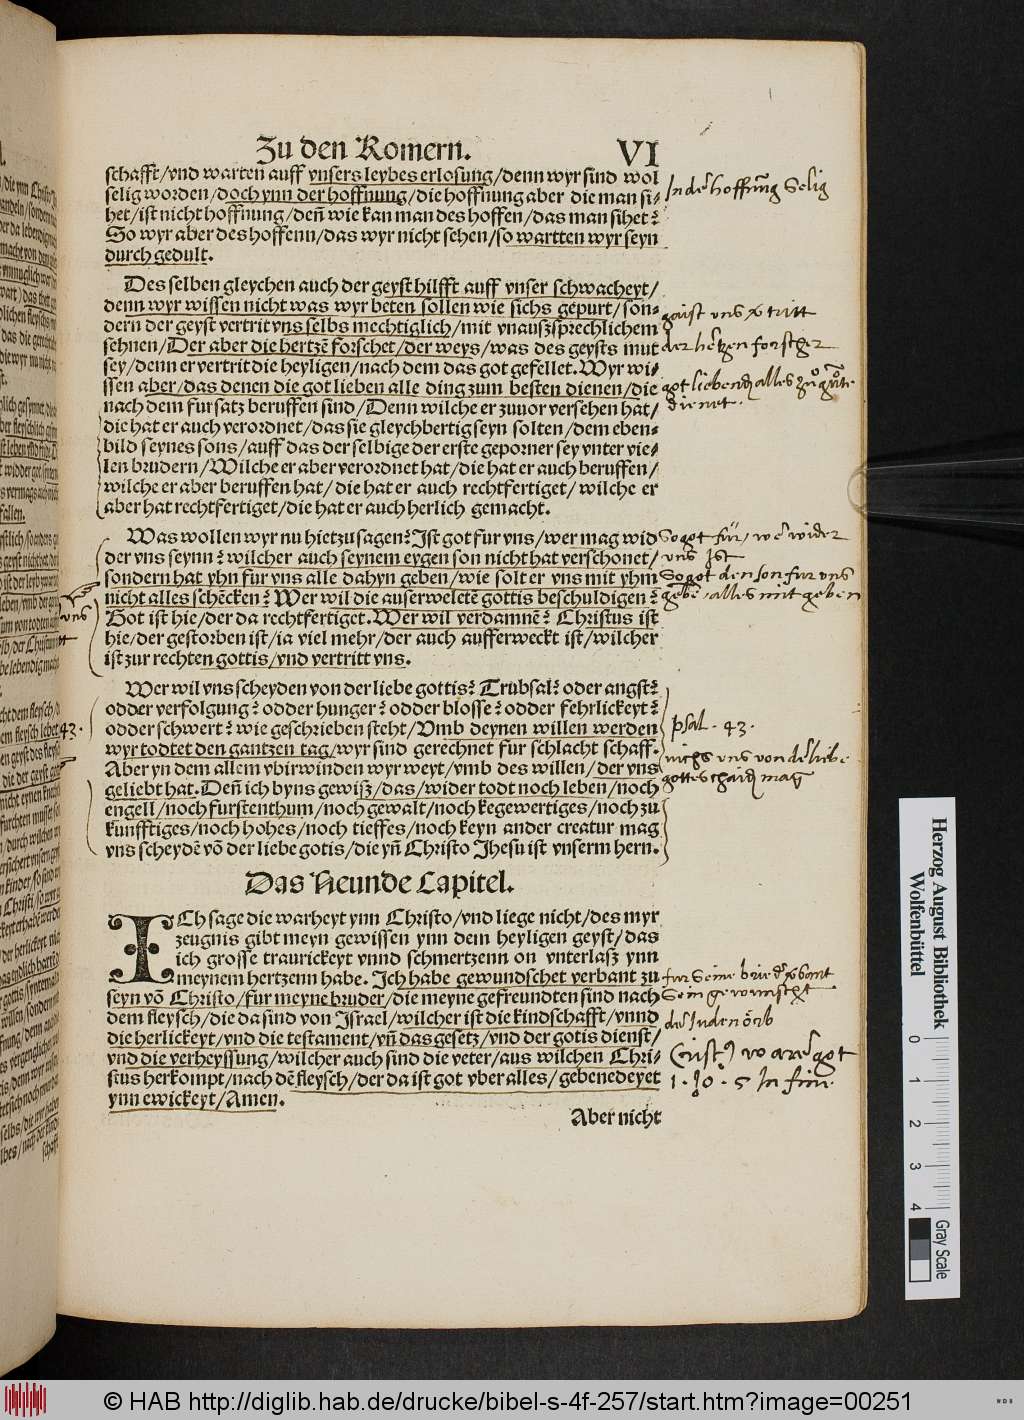 Zu den Romern. VI
schafft/vnd warten auff vnsers leybes erlosung/denn wyr sind wol
selig worden/doch ynn der hoffnung/die hoffnung aber die man si-
het/ist nicht hoffnung/deñ wie kan man des hoffen/das man sihet?
So wyr aber des hoffenn/das wyr nicht sehen/so wartten wyr seyn
durch gedult.
In der hoffnung Selig
Des selben gleychen auch der geyst hilfft auff vnser schwacheyt/
denn wyr wissen nicht was wyr beten sollen wie sichs gepurt/son-
dern der geyst vertrit vns selbs mechtiglich/mit vnauszsprechlichem
sehnen/Der aber die hertzē forschet/der weys/was des geysts mut
sey/denn er vertrit die heyligen/nach dem das got gefellet. Wyr wi-
ssen aber/das denen die got lieben alle ding zum besten dienen/die
nach dem fursatz beruffen sind/Denn wilche er zuuor versehen hat/
die hat er auch verordnet/das sie gleychbertig seyn solten/dem eben-
bild seynes sons/auff das der selbige der erste geporner sey vnter vie-
len brudern/Wilche er aber verordnet hat/die hat er auch beruffen/
wilche er aber beruffen hat/die hat er auch rechtfertiget/wilche er
aber hat rechtfertiget/die hat er auch herlich gemacht.
gaist vns vertritt
der hertzen forscher
got liebend alles zů gůte
dienet.
Was wollen wyr nu hietzu sagen? Ist got fur vns/wer mag wid
der vns seynn? wilcher auch seynem eygen son nicht hat verschonet/
sondern hat yhn fur vns alle dahyn geben/wie solt er vns mit yhm
nicht alles schēcken? Wer wil die auserweletē gottis beschuldigen?
Got ist hie/der da rechtfertiget. Wer wil verdamnē? Christus ist
hie/der gestorben ist/ia viel mehr/der auch aufferweckt ist/wilcher
ist zur rechten gottis/vnd vertritt vns.
So got für/wer wider
vns Ist
So got den son fur vns
geben/alles mit geben
Wer wil vns scheyden von der liebe gottis? Trubsal? oder angst?
odder verfolgung? odder hunger? odder blosse? odder fehrlickeyt?
odder schwert? wie geschrieben steht/Vmb deynen willen werden
wyr todtet den gantzen tag/wyr sind gerechnet fur schlacht schaff.
Aber yn dem allem vbirwinden wyr weyt/vmb des willen/der vns
geliebt hat. Deñ ich byns gewisz/das/wider todt noch leben/noch
engell/noch furstenthum/noch gewalt/noch kegewertiges/noch zu
kunfftiges/noch hohes/noch tieffes/noch keyn ander creatur mag
vns scheydē võ der liebe gotis/die yñ Christo Jhesu ist vnserm hern.
psal. 43.
nichs vns von der liebe
gottes schaid mag
Das Neunde Capitel.
ICh sage die warheyt ynn Christo/vnd liege nicht/des myr
zeugnis gibt meyn gewissen ynn dem heyligen geyst/das
ich grosse traurickeyt vnnd schmertzenn on vnterlasz ynn
meynem hertzenn habe. Ich habe gewundschet verbant zu
seyn võ Christo/fur meyne bruder/die meyne gefreundten sind nach
dem fleysch/die da sind von Israel/wilcher ist die kindschafft/vnnd
die herlickeyt/vnd die testament/vñ das gesetz/vnd der gotis dienst/
vnd die verheyssung/wilcher auch sind die veter/aus wilchen Chri-
stus herkompt/nach dē fleysch/der da ist got vber alles/gebenedeyet
ynn ewickeyt/Amen.
fur seine brieder verbant
Sein gewunscht
der Juden
Cristus warer got
1. Jo. 5 In fine
Aber nicht
Herzog August Bibliothek
Wolfenbüttel
0 1 2 3 4
Gray Scale
© HAB http://diglib.hab.de/drucke/bibel-s-4f-257/start.htm?image=00251